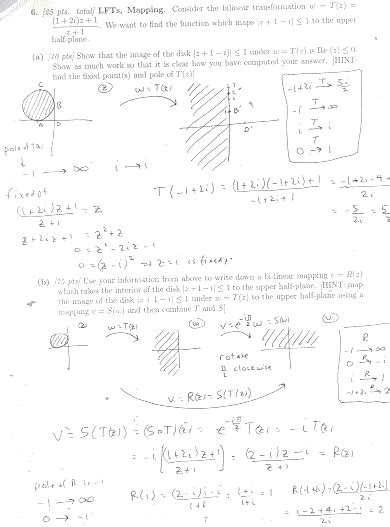 6. [25 pts. total] LFTs, Mapping. Consider the bilinear transformation w = T(z) =
((1+2i)z+1)/(z+1). We want to find the function which maps |z + 1 − i| ≤ 1 to the upper
half-plane.
(a) [10 pts] Show that the image of the disk |z + 1 − i)| ≤ 1 under w = T(z) is Re (z) ≤ 0.
Show as much work so that it is clear how you have computed your answer. [HINT:
find the fixed point(s) and pole of T(z)]
C
B
A D
(z)
w = T(z)
i B'
D'
-1+2i T→ 5i/2
-1 T→ ∞
i T→ i
0 T→ 1
pole of T(z)
-1 → ∞ i → i
fixed pt
((1+2i)z+1)/(z+1) = z
z+2iz+1 = z²+z
0 = z²-2iz-1
0 = (z-i)² → z=i is fixed pt
T(-1+2i) = ((1+2i)(-1+2i)+1)/(-1+2i+1) = (-1+2i-4
2i
= -5/2i = 5
(b) [15 pts] Use your information from above to write down a bi-linear mapping v = R(z)
which takes the interior of the disk |z + 1 − i| ≤ 1 to the upper half-plane. [HINT: map
the image of the disk |z + 1 − i| ≤ 1 under w = T(z) to the upper half-plane using a
mapping v = S(w) and then combine T and S]
(z) w=T(z) (w) v = e^(-iπ/2) w = S(w) (v)
rotate
π/2 clockwise
v = R(z) = S(T(z))
R
-1 → ∞
0 R→ -i
i R→ 1
-1+2i R→
v = S(T(z)) = (S∘T)(z) = e^(-iπ/2) T(z) = -i T(z)
= -i[((1+2i)z+1)/(z+1)] = ((2-i)z-i)/(z+1) = R(z)
pole of R is -1
-1 → ∞
0 → -i
R(i) = ((2-i)i-i)/(1+i) = (i+1)/(1+i) = 1
R(-1+2i) = (2-i)(-1+2i)
2i
= (i-2+4i+2-i)/2i = 2